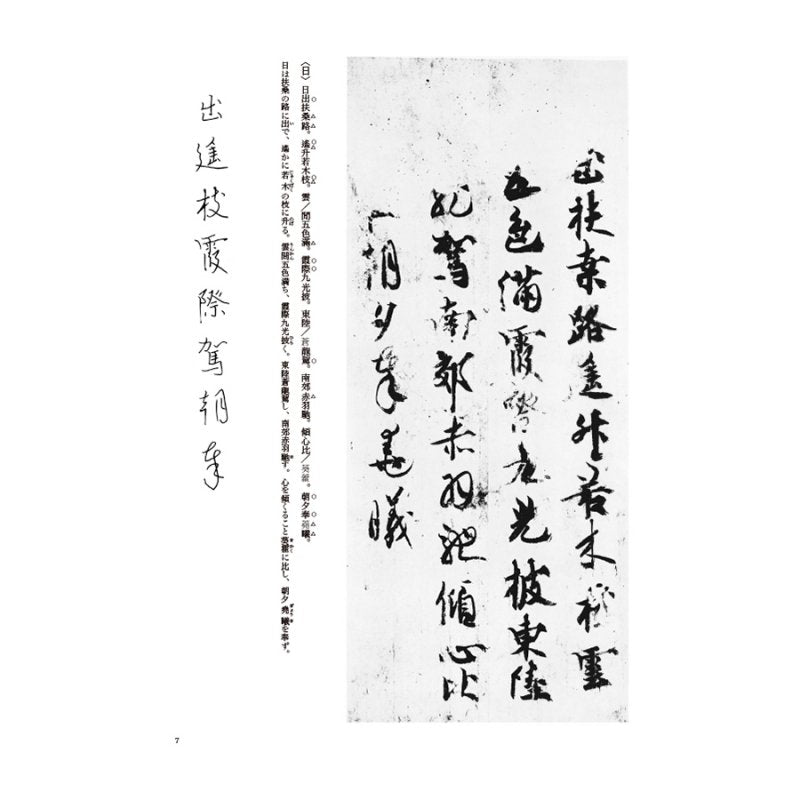 出扶桑路遥升若木枝雲
五色滿霞際九光披東陸
龍駕南郊赤羽馳傾心比
朝夕奉堯曦
〈日〉日出扶桑路。遙升若木枝。雲／間五色滿。霞際九光披。東陸／蒼龍駕。南郊赤羽馳。傾心比／葵藿。朝夕奉堯曦。
日は扶桑の路に出で、遙かに若木の枝に升る。雲間五色満ち、霞際九光披く。東陸蒼龍駕し、南郊赤羽馳す。心を傾くること葵藿に比し、朝夕堯曦を奉ず。
出遥枝霞際駕朝奉
7